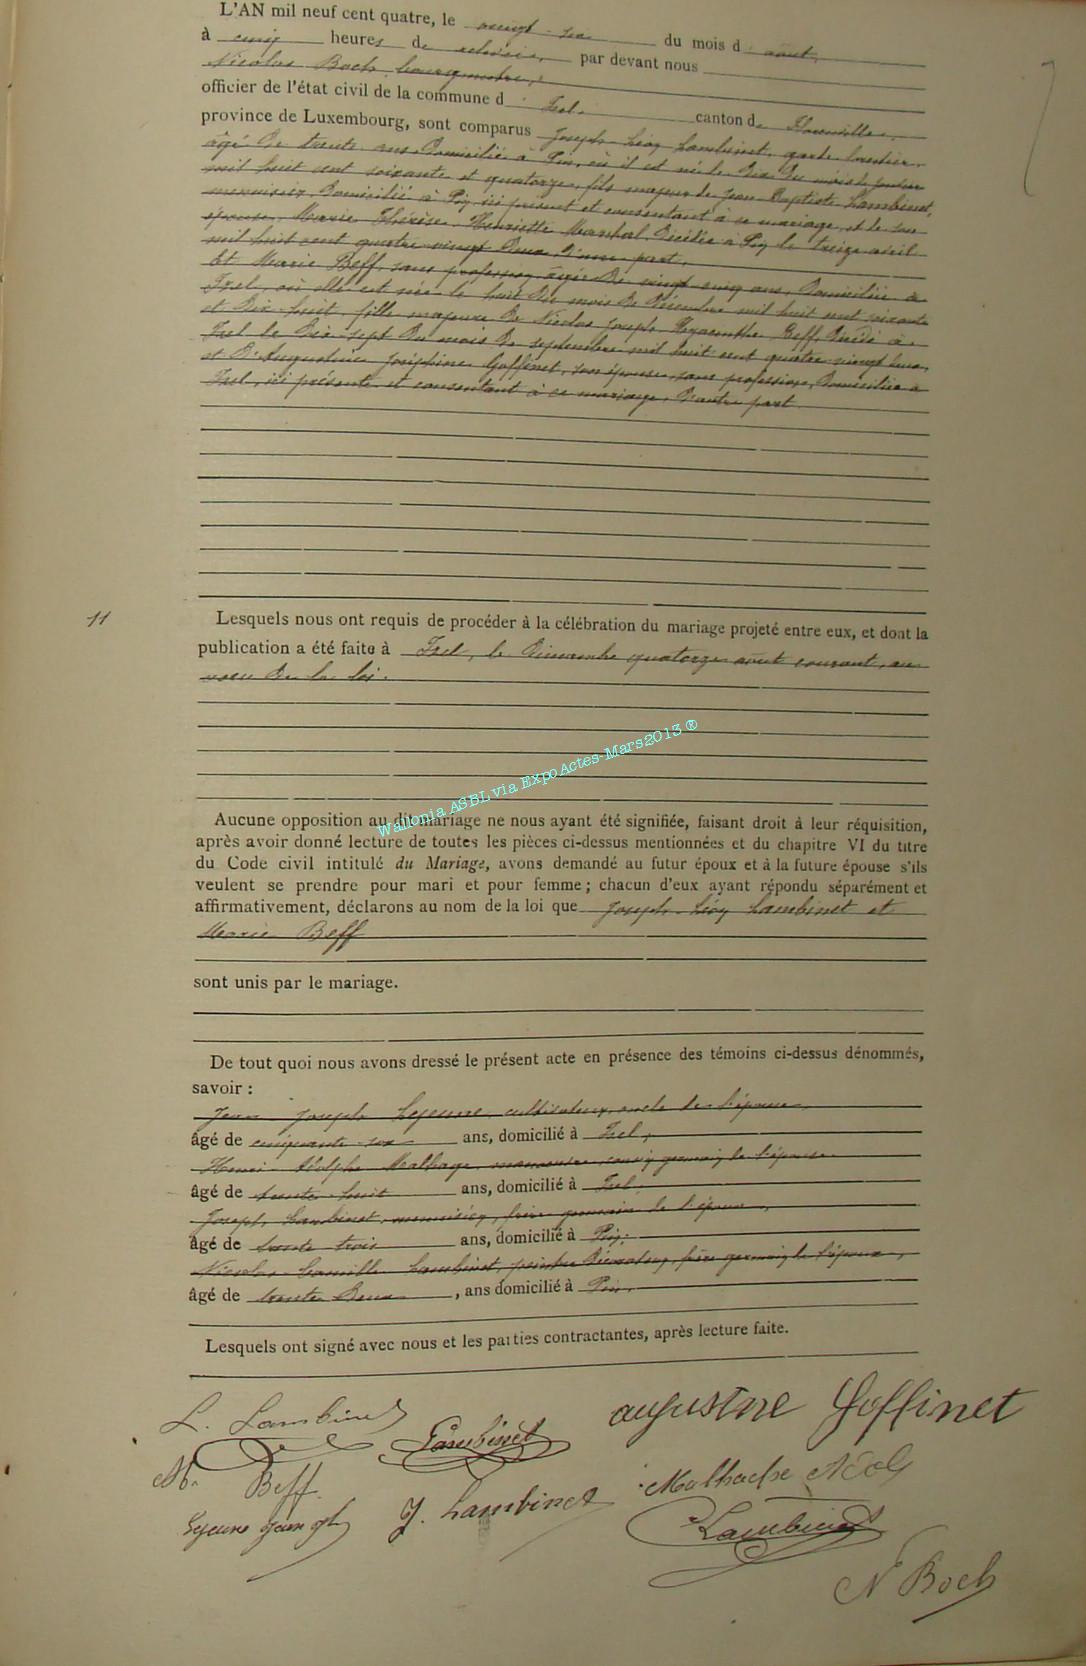 L'AN mil neuf cent quatre, le vingt-six du mois d'août,
à cinq heures de relevée, par devant nous
Nicolas Boch, bourgmestre,
officier de l'état civil de la commune d'Izel canton de Florenville
province de Luxembourg, sont comparus Joseph Léon Lambinet, garde forestier,
âgé de trente ans, domicilié à Pin, où il est né le dix du mois de
mil huit cent soixante et quatorze, fils majeur de Jean Baptiste Lambinet,
menuisier, domicilié à Pin, ici présent et consentant à ce mariage, et de son
épouse, Marie Thérèse Henriette Maréchal, décédée à Pin le treize avril
mil huit cent quatre vingt deux, d'une part,
Et Marie Beff, sans profession, âgée de vingt cinq ans, domiciliée à
Izel, où elle est née le huit du mois de Décembre mil huit cent soixante
et dix-huit, fille majeure de Nicolas Joseph Hyacinthe Beff, décédé à
Izel le dix-sept du mois de septembre mil huit cent quatre vingt
et d'Augustine Joséphine Goffinet, son épouse, sans profession, domiciliée à
Izel, ici présente et consentant à ce mariage, d'autre part
11
Lesquels nous ont requis de procéder à la célébration du mariage projeté entre eux, et dont la
publication a été faite à Izel, le Dimanche quatorze août courant, au
vœu de la loi.
Wallonia ASBL via ExpoActes-Mars2013 ®
Aucune opposition au dit mariage ne nous ayant été signifiée, faisant droit à leur réquisition,
après avoir donné lecture de toutes les pièces ci-dessus mentionnées et du chapitre VI du titre
du Code civil intitulé du Mariage, avons demandé au futur époux et à la future épouse s'ils
veulent se prendre pour mari et pour femme; chacun d'eux ayant répondu séparément et
affirmativement, déclarons au nom de la loi que Joseph Léon Lambinet et
Marie Beff
sont unis par le mariage.
De tout quoi nous avons dressé le présent acte en présence des témoins ci-dessus dénommés,
savoir :
Jean Joseph Lejeune, cultivateur, oncle de l'épouse
âgé de cinquante-six ans, domicilié à Izel,
Henri Adolphe Malhage, cousin germain de l'épouse
âgé de trente-huit ans, domicilié à Izel,
Joseph Lambinet, menuisier, frère germain de l'époux,
âgé de trente trois ans, domicilié à Pin,
Nicolas Camille Lambinet, peintre décorateur, frère germain de l'époux,
âgé de trente deux, ans domicilié à Pin.
Lesquels ont signé avec nous et les parties contractantes, après lecture faite.
L. Lambinet Lambinet augustine Goffinet
M. Beff
Lejeune Jean J. Lambinet
Lambinet
N Boch